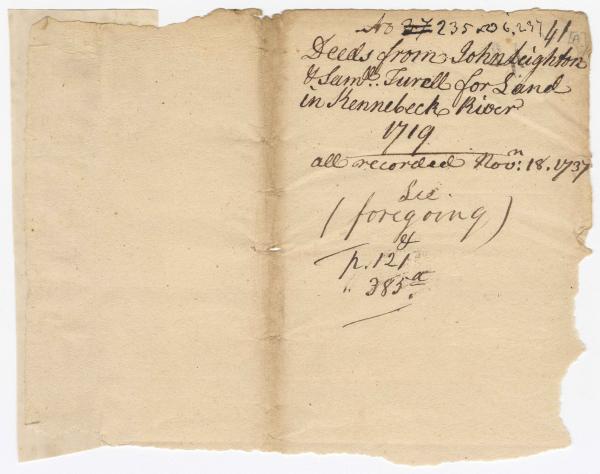 No 37 235 236, 237 41
Deeds from John Leighton
& Sam.ll Turell for Land
in Kennebeck River
1719
all recorded Nov.n 18. 1737
See.
(foregoing)
&
p. 121
" 385a